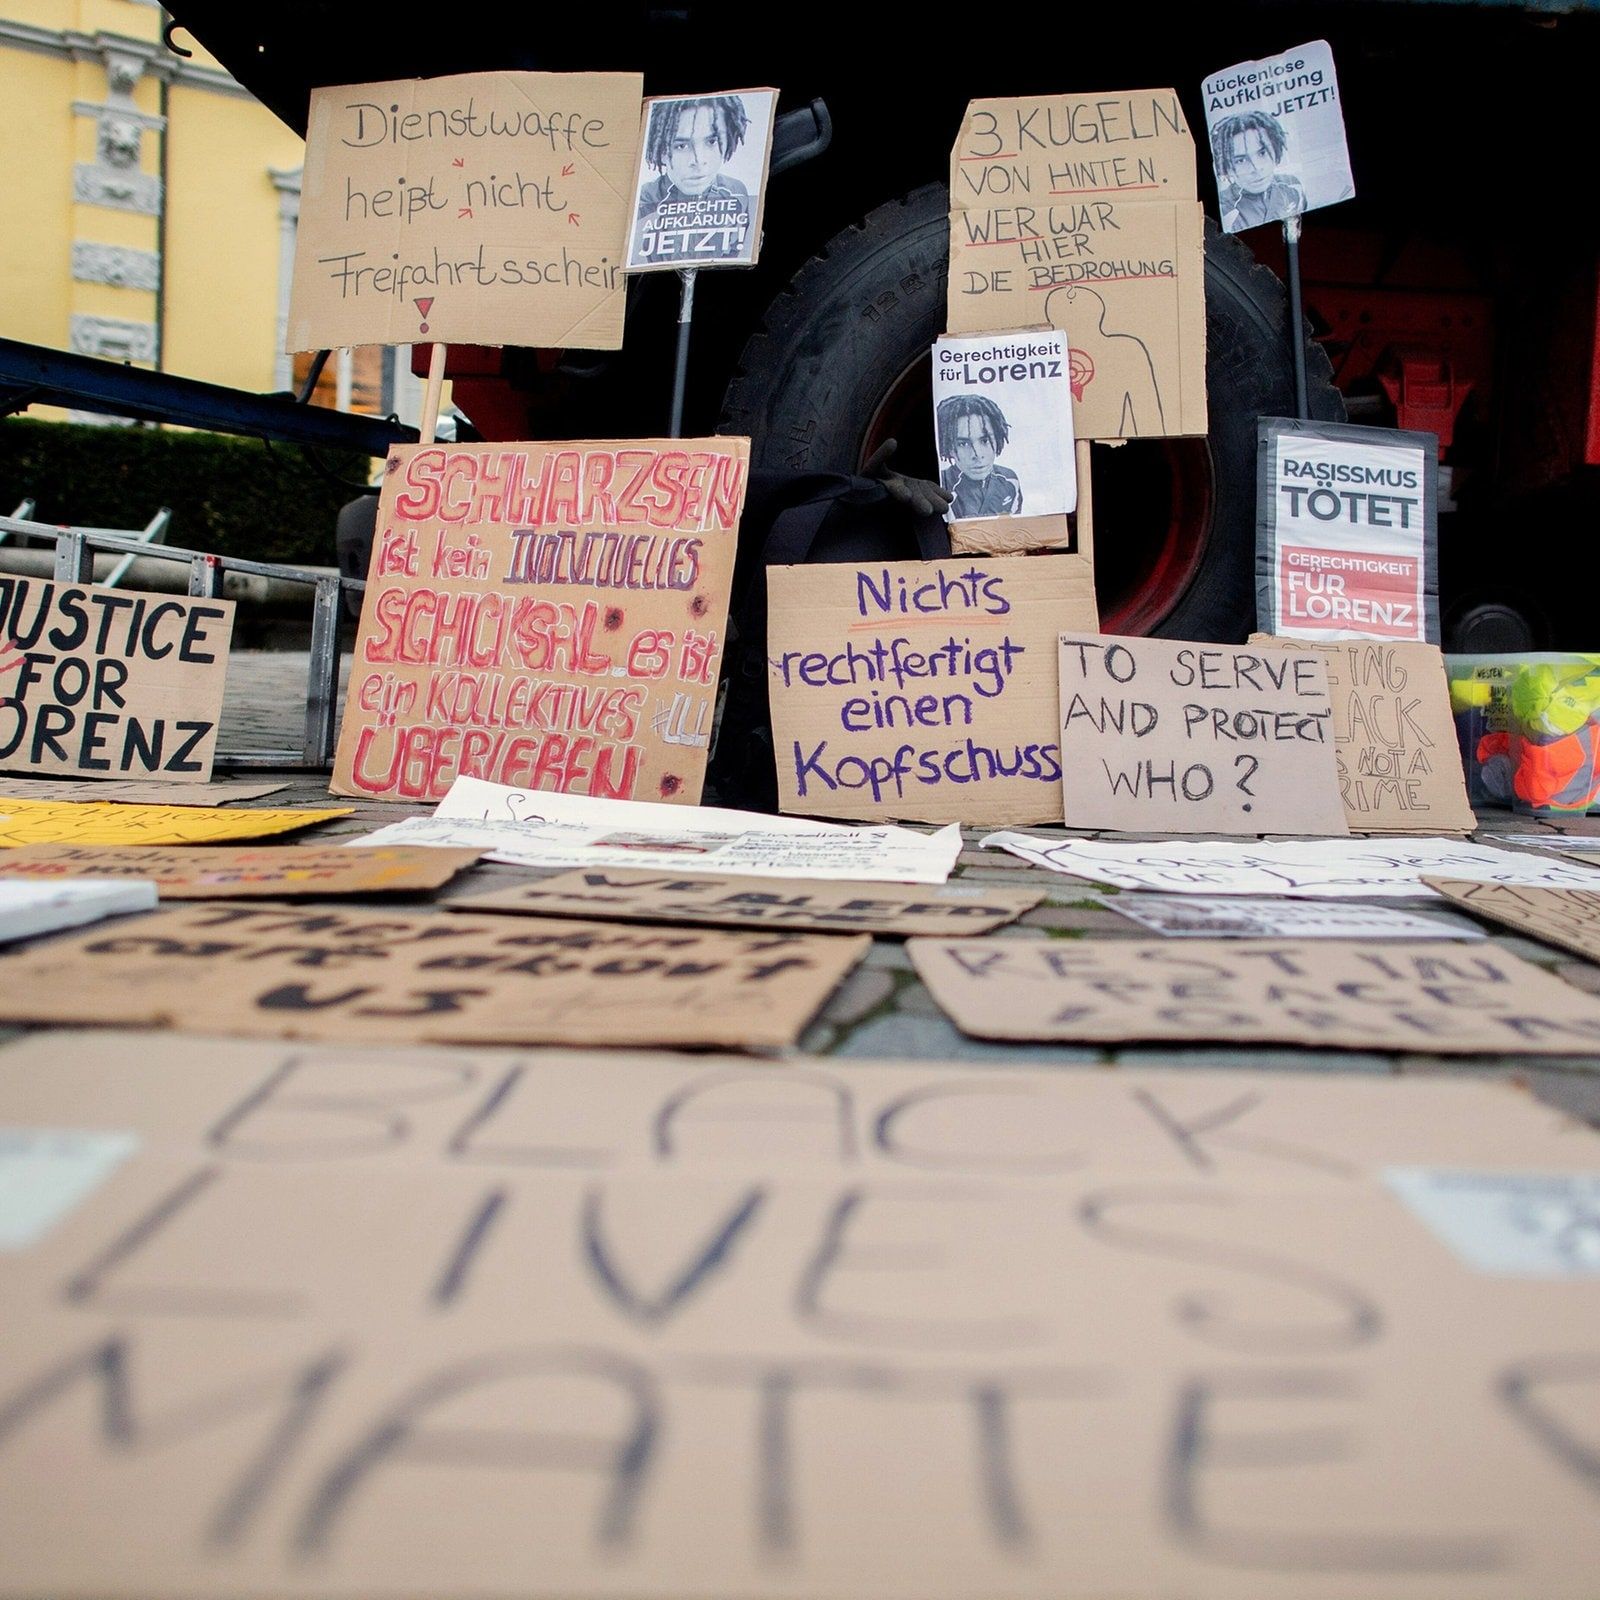 Dienstwaffe
heißt nicht
Freifahrtsschein
!
GERECHTE
AUFKLÄRUNG
JETZT!
3 KUGELN.
VON HINTEN.
WER WAR
HIER
DIE BEDROHUNG
Lückenlose
Aufklärung
JETZT!
Gerechtigkeit
für Lorenz
SCHWARZSEIN
ist kein INDIVIDUELLES
SCHICKSAL es ist
ein KOLLEKTIVES
ÜBERLEBEN
RASISSMUS
TÖTET
GERECHTIGKEIT
FÜR
LORENZ
JUSTICE
FOR
ORENZ
Nichts
rechtfertigt
einen
Kopfschuss
"TO SERVE
AND PROTECT"
WHO?
EING
LACK
IS NOT A
RIME
WE BLEED
THE SAME
They don't
care about
us
REST IN
PEACE
LOREN
BLACK
LIVES
MATTE